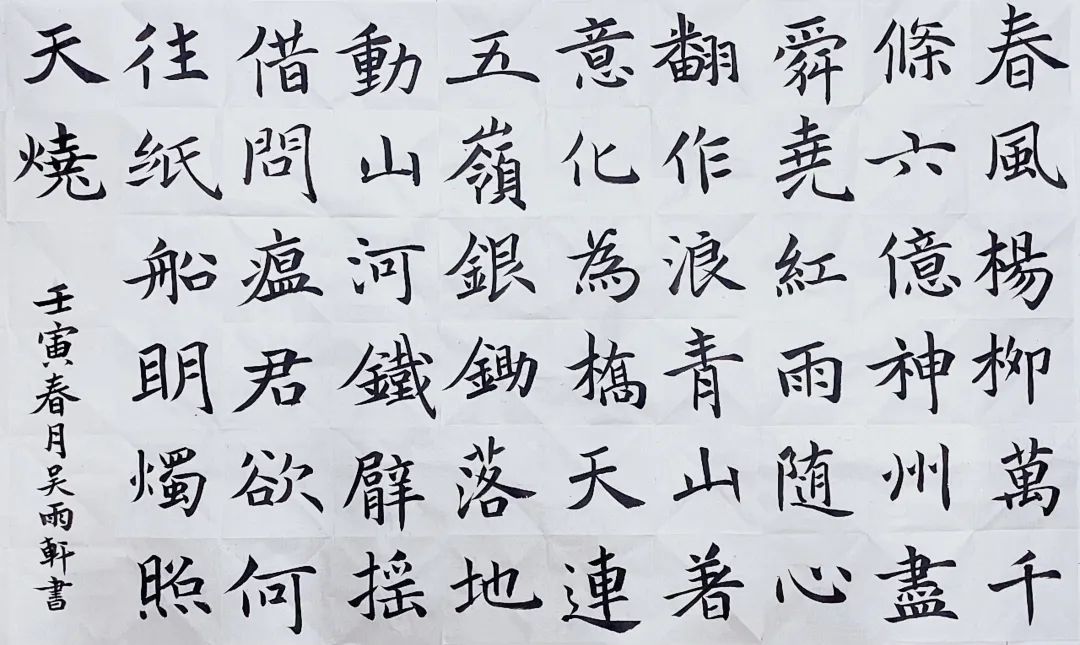 春風楊柳萬千
條六億神州盡
舜堯紅雨随心
翻作浪青山著
意化為橋天連
五嶺銀鋤落地
動山河鐵臂摇
借問瘟君欲何
往紙船眀燭照
天燒
壬寅春月吴雨軒書